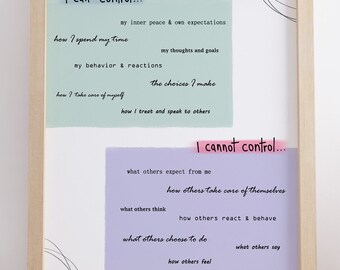 I can control...
my inner peace & own expectations
how I spend my time
my thoughts and goals
my behavior & reactions
the choices I make
how I take care of myself
how I treat and speak to others
I cannot control...
what others expect from me
how others take care of themselves
what others think
how others react & behave
what others choose to do
what others say
how others feel